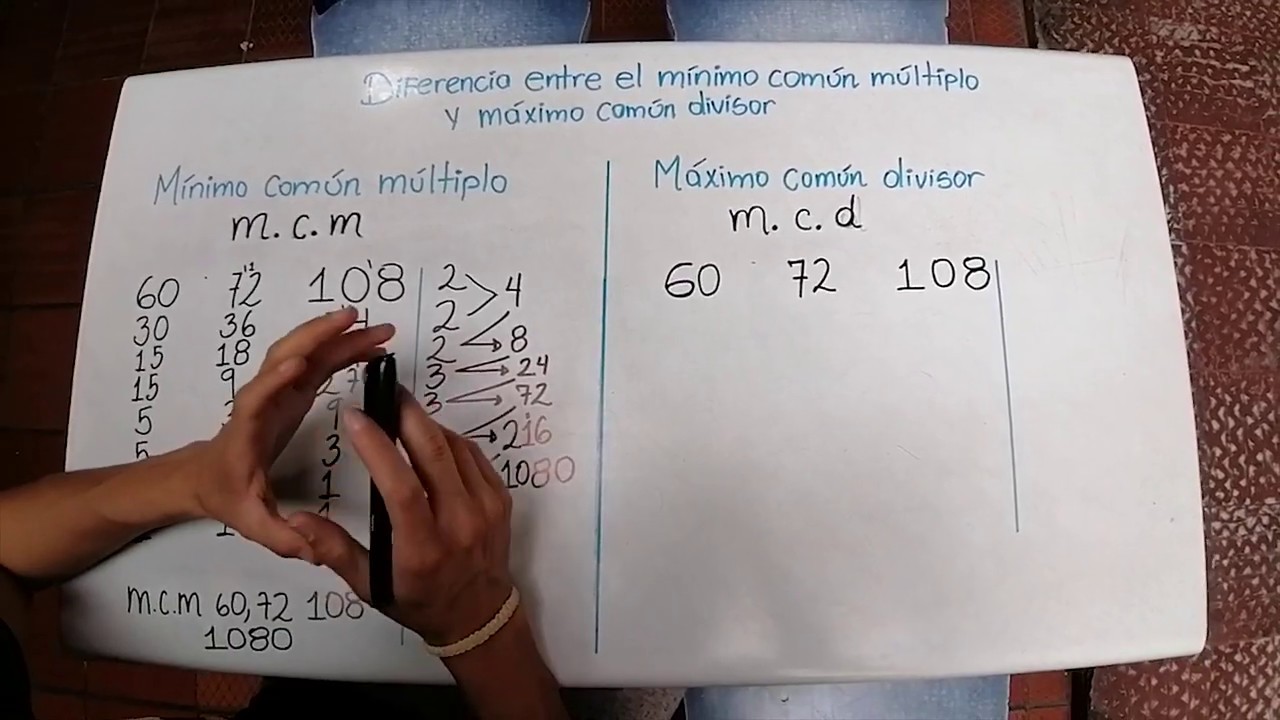 Diferencia entre el mínimo común múltiplo
y máximo común divisor
Mínimo común múltiplo
m.c.m
60 72 108 2 4
30 36 2 8
15 18 2 24
15 9 27 3 72
5 9 3 216
5 3 1080
1
1
m.c.m 60,72 108
1080
Máximo común divisor
m.c.d
60 72 108